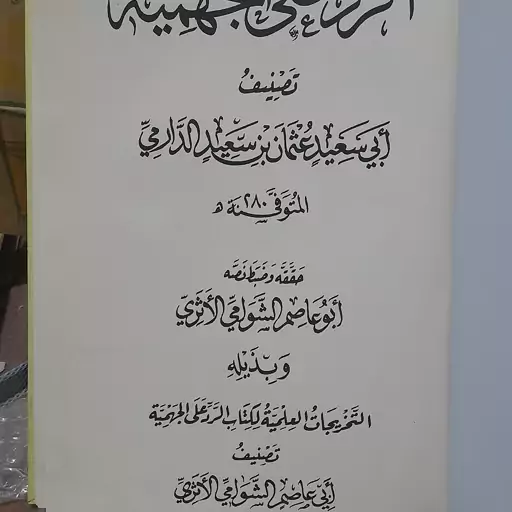 الرد على الجهمية
تَصْنِيفُ
أَبِي سَعِيدٍ عُثْمَانَ بْنِ سَعِيدٍ الدَّارِمِيِّ
المُتَوَفَّى سَنَة ٢٨٠ هـ
حَقَّقَهُ وَضَبَطَ نَصَّهُ
أَبُو عَاصِمٍ الشَّوَامِيُّ الأَثَرِيُّ
وَبِذَيْلِهِ
التَّخْرِيجَاتُ العِلْمِيَّةُ لِكِتَابِ الرَّدِّ عَلَى الجَهْمِيَّةِ
تَصْنِيفُ
أَبِي عَاصِمٍ الشَّوَامِيِّ الأَثَرِيِّ